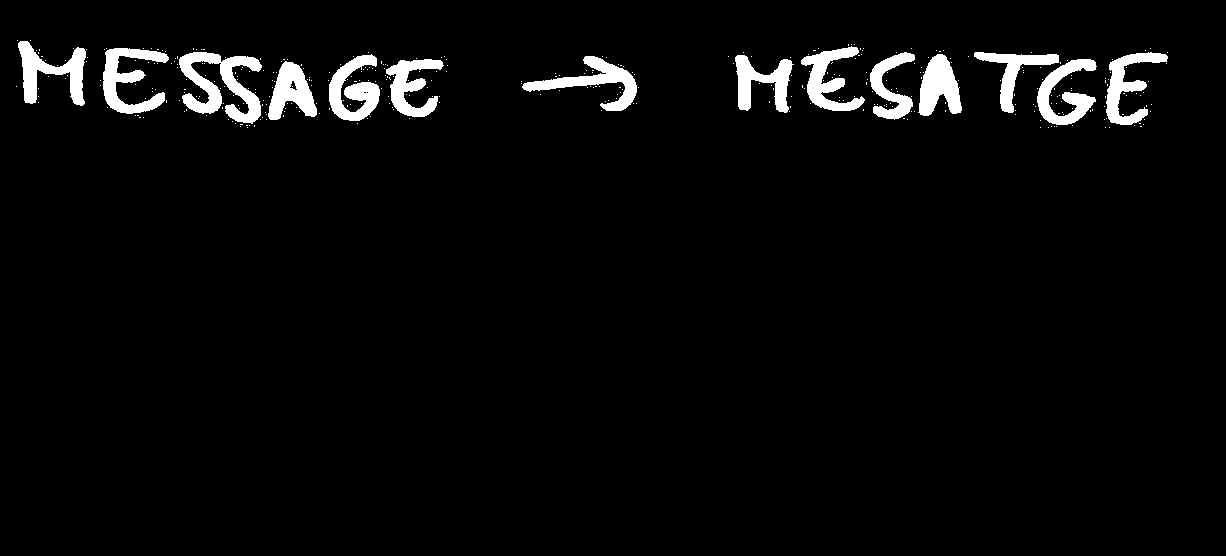 MESSAGE → MESATGE